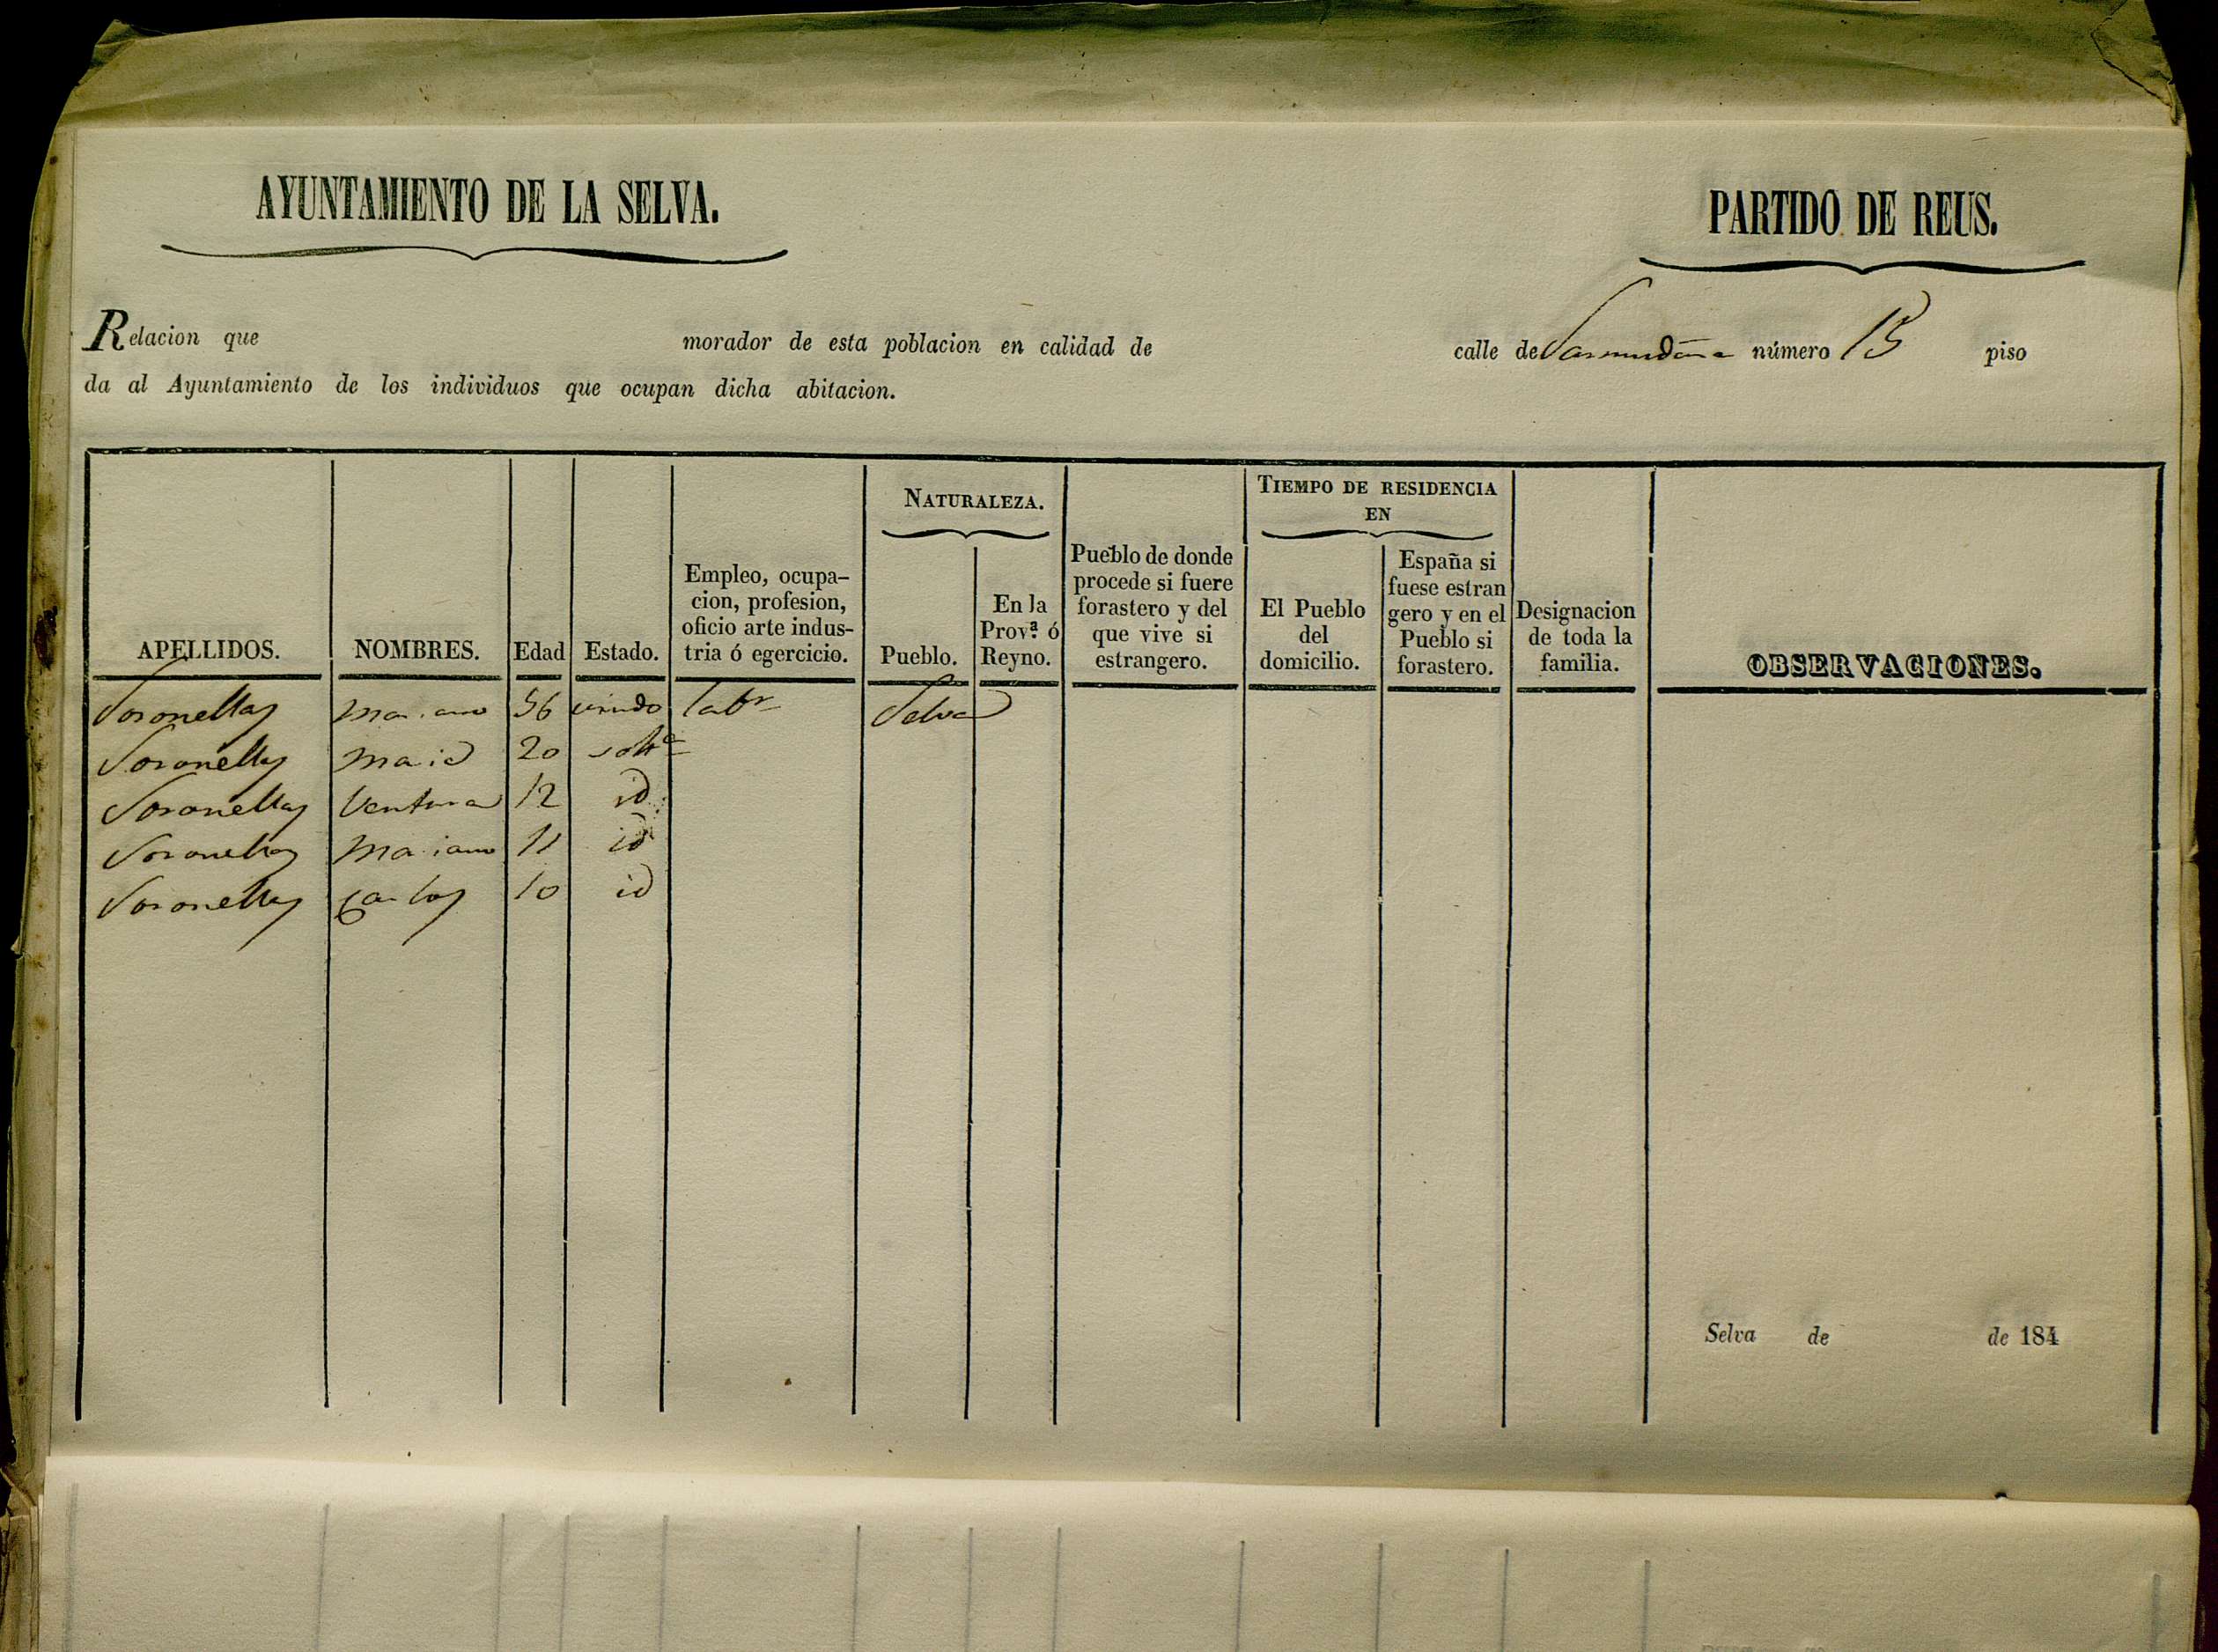 AYUNTAMIENTO DE LA SELVA.
PARTIDO DE REUS.
Relacion que morador de esta poblacion en calidad de calle de número 15 piso
da al Ayuntamiento de los individuos que ocupan dicha abitacion.
NATURALEZA.
TIEMPO DE RESIDENCIA
EN
APELLIDOS.
NOMBRES.
Edad
Estado.
Empleo, ocupa-
cion, profesion,
oficio arte indus-
tria ó egercicio.
Pueblo.
En la
Prov.ª ó
Reyno.
Pueblo de donde
procede si fuere
forastero y del
que vive si
estrangero.
El Pueblo
del
domicilio.
España si
fuese estran
gero y en el
Pueblo si
forastero.
Designacion
de toda la
familia.
OBSERVACIONES.
Soronellas Mariano 56 viudo labr Selva
Soronellas Maria 20 solta
Soronellas Ventura 12 id
Soronellas Mariano 11 id
Soronellas Carlos 10 id
Selva de de 184